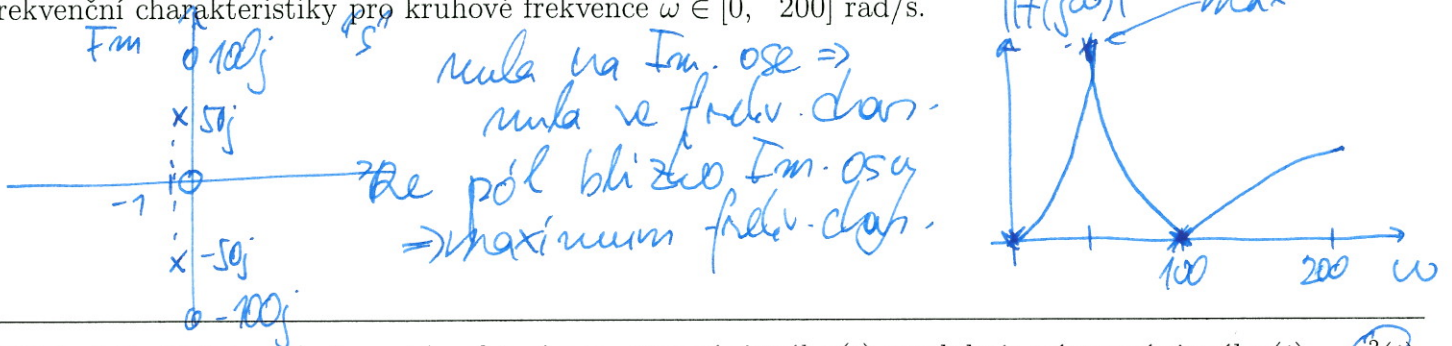 rekvenční charakteristiky pro kruhové frekvence ω ∈ [0, 200] rad/s.
Im
"s"
|H(jω)|
max
100j
nula na Im. ose ⇒
50j
nula ve frekv. char.
Re
pól blízko Im. osy
-1
⇒ maximum frekv. char.
-50j
100
200
ω
-100j